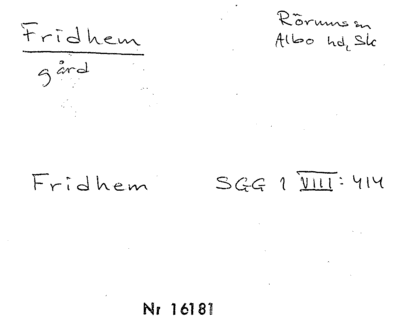 Fridhem
gård
Rörums sn
Albo hd, Sk
Fridhem
SGG 1 VIII: 414
Nr 16181